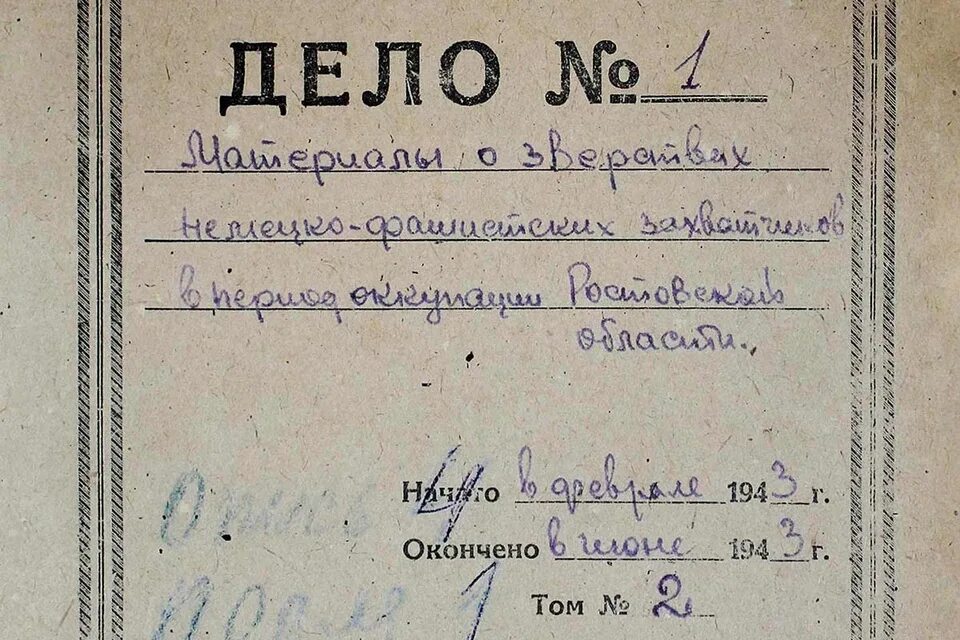 ДЕЛО № 1
Материалы о зверствах
немецко-фашистских захватчиков
в период оккупации Ростовской
области.
Начато в феврале 1943 г.
Окончено в июне 1943 г.
Том № 2